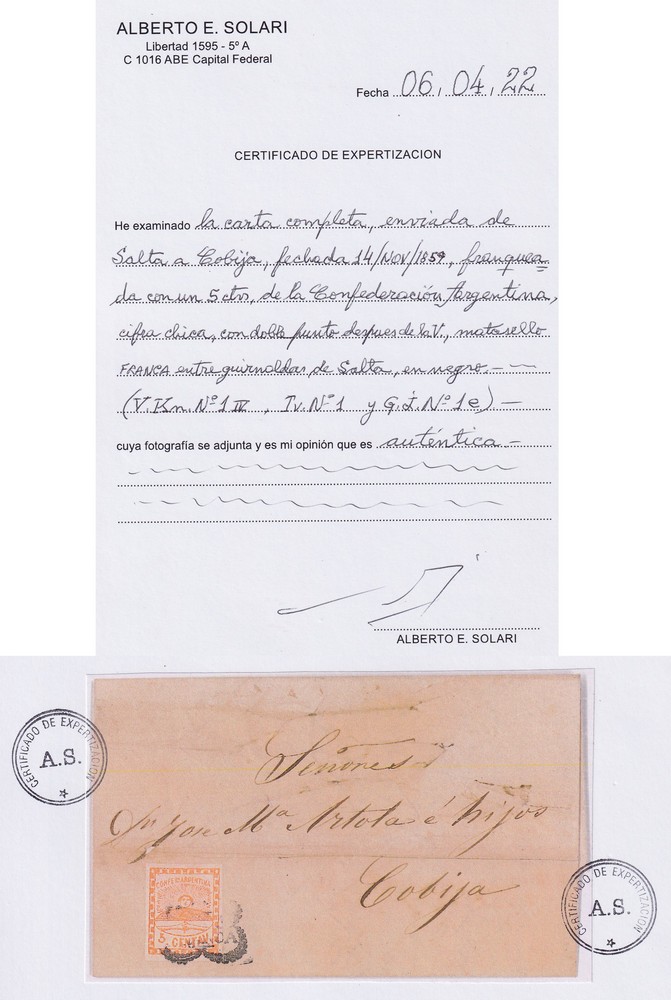 ALBERTO E. SOLARI
Libertad 1595 - 5º A
C 1016 ABE Capital Federal
Fecha 06, 04, 22
CERTIFICADO DE EXPERTIZACION
He examinado la carta completa, enviada de
Salta a Cobija, fechada 14/NOV/1859, franquea=
da con un 5 ctvs. de la Confederación Argentina,
cifra chica, con doble punto despues de la V, matasello
FRANCA entre guirnaldas de Salta, en negro.-
(V.Kn. Nº 1 IV, Iv. Nº 1 y G.J. Nº 1e)-
cuya fotografía se adjunta y es mi opinión que es auténtica-
ALBERTO E. SOLARI
CERTIFICADO DE EXPERTIZACION
A.S.
Señores
Dn Jose Mª Artola é hijos
Cobija
CONFEON ARGENTINA
5 CENTAV
CERTIFICADO DE EXPERTIZACION
A.S.